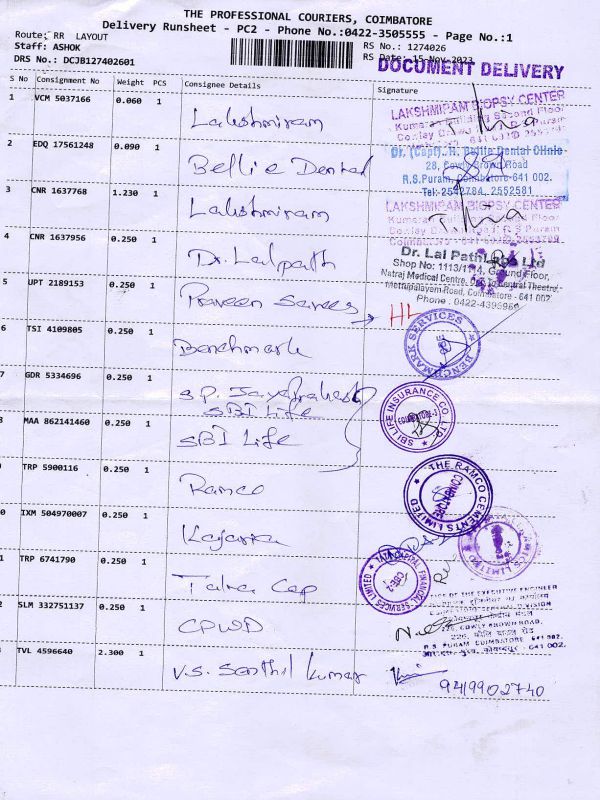 THE PROFESSIONAL COURIERS, COIMBATORE
Delivery Runsheet - PC2 - Phone No.:0422-3505555 - Page No.:1
Route: RR LAYOUT
Staff: ASHOK
RS No.: 1274026
DRS No.: DCJB127402601
RS Date: 15-Nov-2023
DOCUMENT DELIVERY
S No Consignment No Weight PCS Consignee Details Signature
1 VCM 5037166 0.060 1 Lakshmiram
LAKSHMIRAM BIOPSY CENTER
Kumaran Building Second Floor
2 EDQ 17561248 0.090 1 Bellie Dental
Dr. (Capt). H. Bellie Dental Clinic
28, Cowly Brown Road
R.S.Puram, Coimbatore-641 002.
Tel: 2542784, 2552581
3 CNR 1637768 1.230 1 Lakshmiram
LAKSHMIRAM BIOPSY CENTER
4 CNR 1637956 0.250 1 Dr. Lalpath
Dr. Lal PathLabs Ltd
Shop No: 1113/1114, Ground Floor,
Natraj Medical Centre, Central Theatre,
Mettupalayem Road, Coimbatore - 641 002
Phone : 0422-4395960
5 UPT 2189153 0.250 1 Praveen Sarees
6 TSI 4109805 0.250 1 Benchmark
BENCHMARK SERVICES
7 GDR 5334696 0.250 1 S.P. Jayaprakash
SBI Life
SBI LIFE INSURANCE CO. LTD.
MAA 862141460 0.250 1 SBI Life
TRP 5900116 0.250 1 Ramco
THE RAMCO CEMENTS LIMITED
COIMBATORE
0 IXM 504970007 0.250 1 Kajaria
1 TRP 6741790 0.250 1 Tata Cap
TATA CAPITAL FINANCIAL SERVICES LIMITED
2 SLM 332751137 0.250 1 CPWD
OFFICE OF THE EXECUTIVE ENGINEER
COWLY BROWN ROAD,
R.S PURAM COIMBATORE 641 002.
TVL 4596640 2.300 1 V.S. Senthil Kumar
9419902740